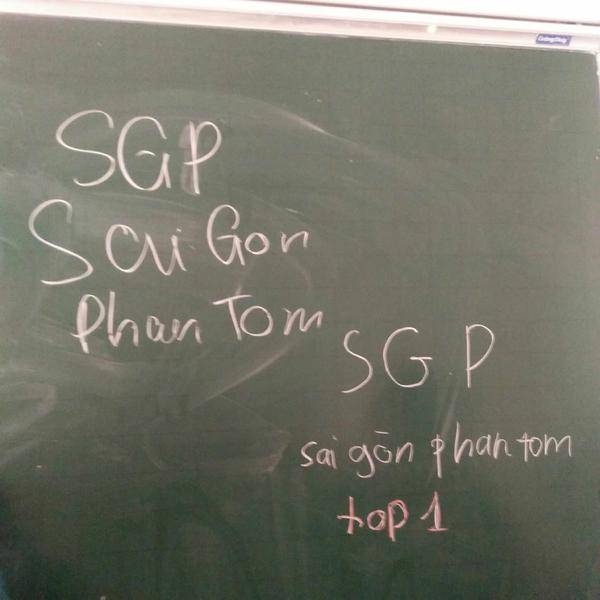 SGP
Sai Gon
Phan Tom
SGP
sai gōn phan tom
top 1